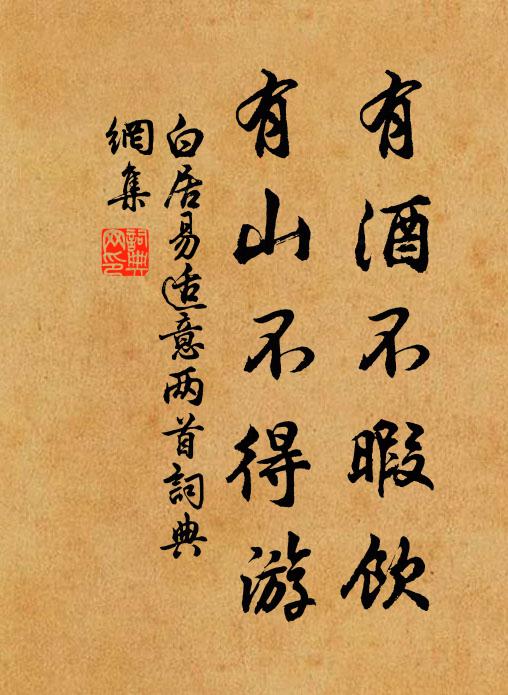 有酒不暇飲
有山不得游
白居易适意两首詞典
網集
詞典網印